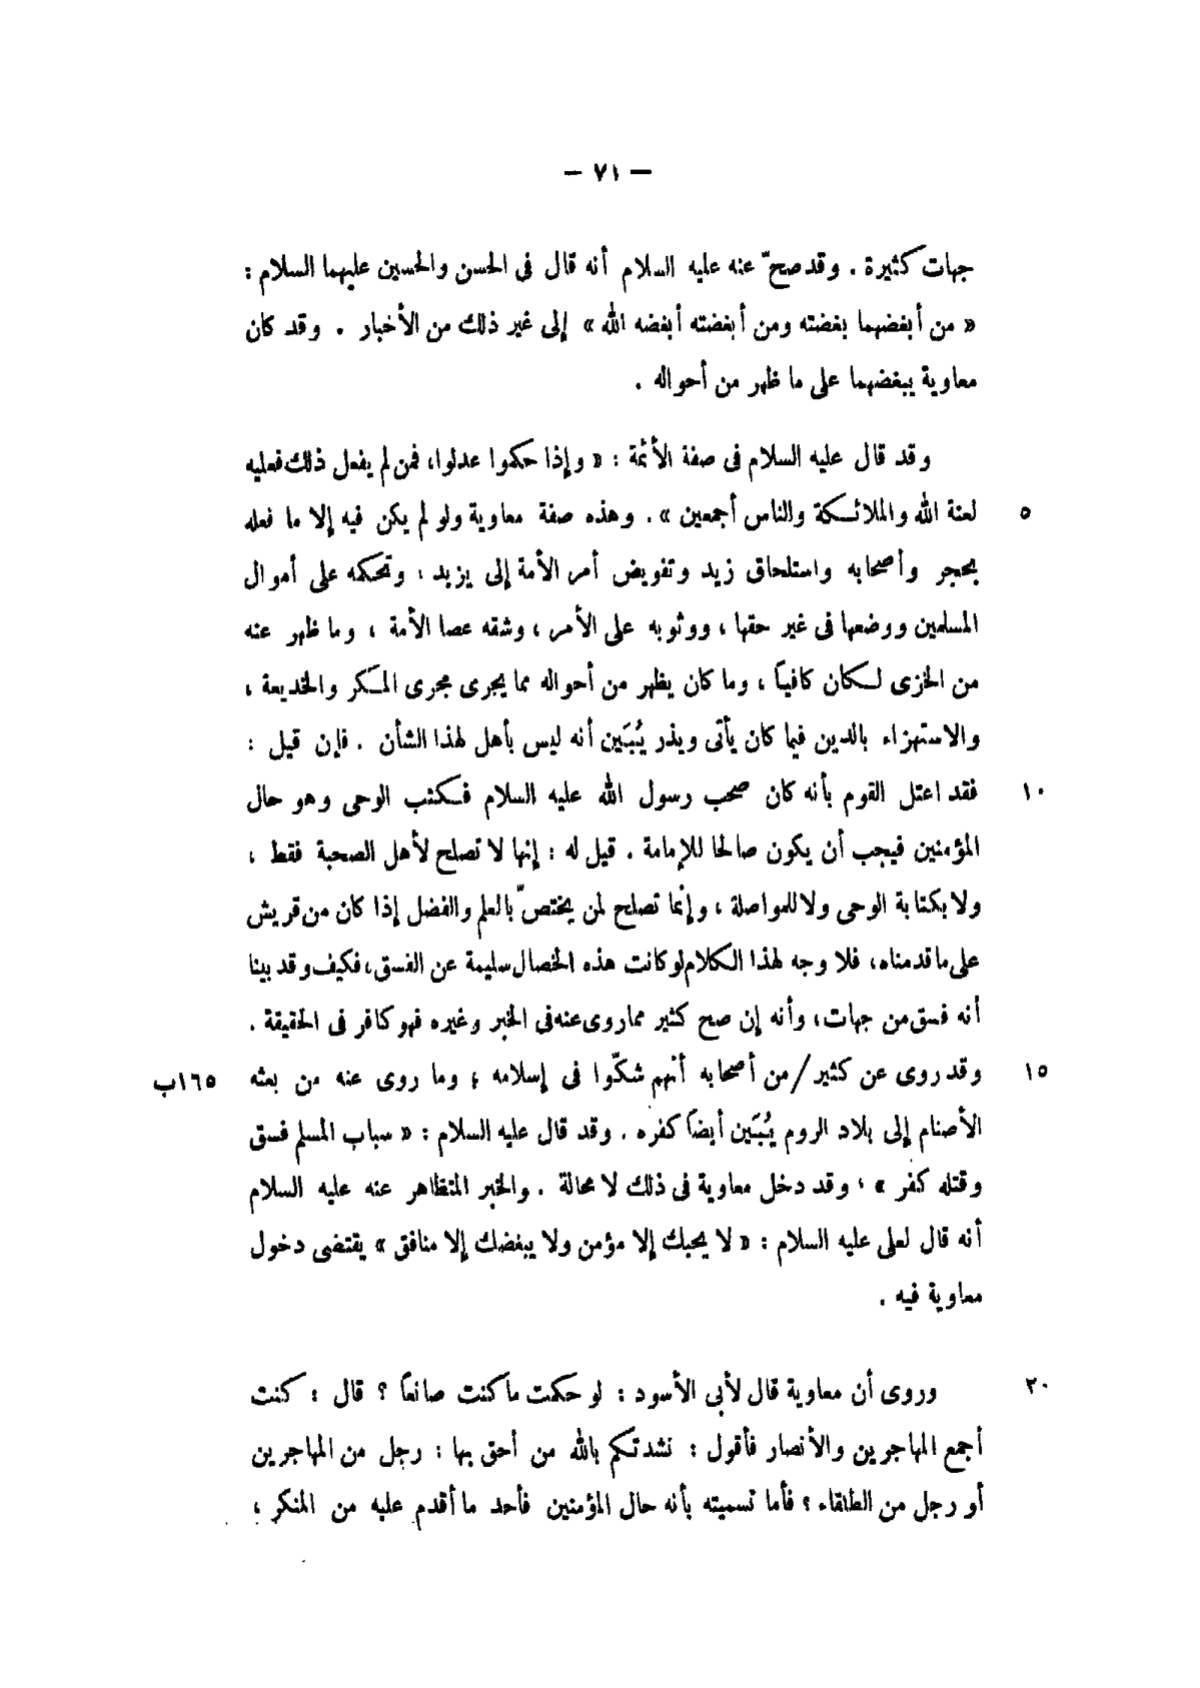 — ٧١ —
جهات كثيرة . وقد صحّ عنه عليه السلام أنه قال فى الحسن والحسين عليهما السلام :
« من أبغضهما بغضته ومن أبغضته أبغضه الله » إلى غير ذلك من الأخبار . وقد كان
معاوية يبغضهما على ما ظهر من أحواله .
وقد قال عليه السلام فى صفة الأئمة : « وإذا حكموا عدلوا، فمن لم يفعل ذلك فعليه
٥ لعنة الله والملائكة والناس أجمعين » . وهذه صفة معاوية ولو لم يكن فيه إلا ما فعله
بحجر وأصحابه واستلحاق زيد وتفويض أمر الأمة إلى يزيد ، وتحكمه على أموال
المسلمين ووضعها فى غير حقها ، ووثوبه على الأمر ، وشقه عصا الأمة ، وما ظهر عنه
من الخزى لكان كافياً ، وما كان يظهر من أحواله مما يجرى مجرى المكر والخديعة ،
والاستهزاء بالدين فيما كان يأتى ويذر يُبَين أنه ليس بأهل لهذا الشأن . فإن قيل :
١٠ فقد اعتل القوم بأنه كان صحب رسول الله عليه السلام فكتب الوحى وهو حال
المؤمنين فيجب أن يكون صالحا للإمامة . قيل له : إنها لا تصلح لأهل الصحبة فقط ،
ولا بكتابة الوحى ولا للمواصلة ، وإنما تصلح لمن يختصّ بالعلم والفضل إذا كان من قريش
على ما قدمناه، فلا وجه لهذا الكلام لو كانت هذه الخصال سليمة عن الفسق، فكيف وقد بينا
أنه فسق من جهات، وأنه إن صح كثير مما روى عنه فى الخبر وغيره فهو كافر فى الحقيقة .
١٥ وقد روى عن كثير / من أصحابه أنهم شكّوا فى إسلامه ؛ وما روى عنه من بعثه ١٦٥ب
الأصنام إلى بلاد الروم يُبَين أيضاً كفره . وقد قال عليه السلام : « سباب المسلم فسق
وقتله كفر » ، وقد دخل معاوية فى ذلك لا محالة . والخبر المتظاهر عنه عليه السلام
أنه قال لعلى عليه السلام : « لا يحبك إلا مؤمن ولا يبغضك إلا منافق » يقتضى دخول
معاوية فيه .
٢٠ وروى أن معاوية قال لأبى الأسود : لو حكمت ما كنت صانعاً ؟ قال : كنت
أجمع المهاجرين والأنصار فأقول : نشدتكم بالله من أحق بها : رجل من المهاجرين
أو رجل من الطلقاء ؟ فأما تسميته بأنه حال المؤمنين فأحد ما أقدم عليه من المنكر ؛